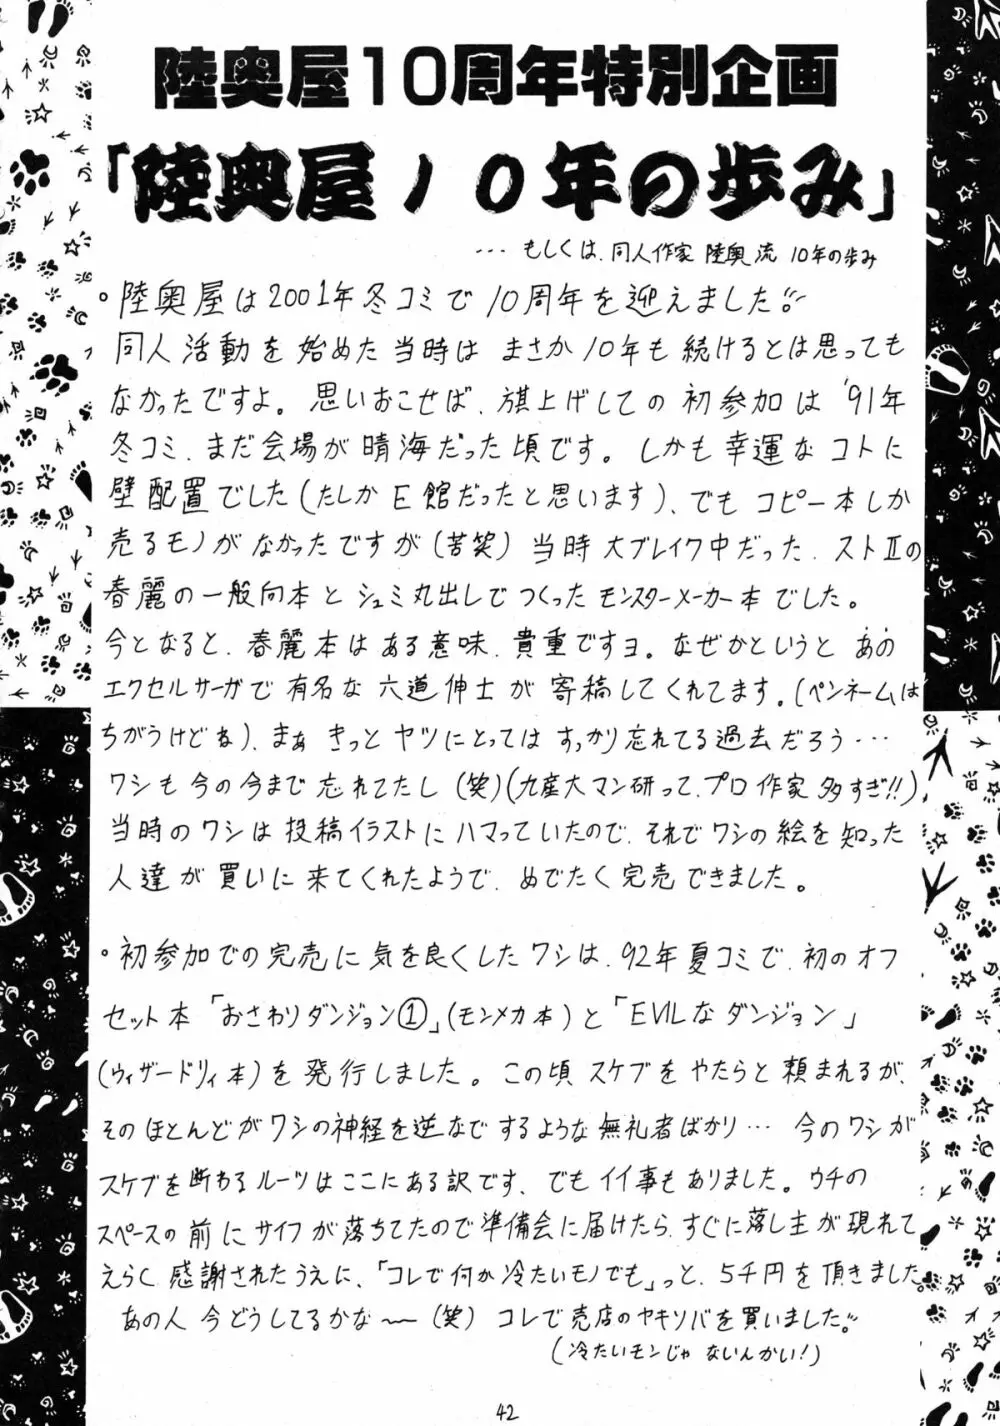 陸奥屋10周年特別企画
「陸奥屋10年の歩み」
… もしくは、同人作家 陸奥流 10年の歩み
。陸奥屋は2001年冬コミで10周年を迎えました!!
同人活動を始めた当時は まさか10年も続けるとは思っても
なかったですよ。思いおこせば、旗上げしての初参加は '91年
冬コミ、まだ会場が晴海だった頃です。しかも幸運なコトに
壁配置でした(たしかE館だったと思います)、でもコピー本しか
売るモノがなかったですが(苦笑)当時大ブレイク中だった、ストⅡの
春麗の一般向本とシュミ丸出しでつくったモンスターメーカー本でした。
今となると、春麗本はある意味、貴重ですヨ。なぜかというと あの
エクセルサーガで有名な六道伸士が寄稿してくれてます。(ペンネームは
ちがうけどね)、まぁ きっとヤツにとってはすっかり忘れてる過去だろう…
ワシも今の今まで忘れてたし(笑)(九産大マン研って、プロ作家多すぎ!!)
当時のワシは投稿イラストにハマっていたので、それでワシの絵を知った
人達が買いに来てくれたようで、めでたく完売できました。
。初参加での完売に気を良くしたワシは、92年夏コミで、初のオフ
セット本「おさわりダンジョン①」(モンメカ本)と「EVILなダンジョン」
(ウィザードリィ本)を発行しました。この頃スケブをやたらと頼まれるが、
そのほとんどがワシの神経を逆なでするような無礼者ばかり… 今のワシが
スケブを断わるルーツはここにある訳です、でもイイ事もありました。ウチの
スペースの前にサイフが落ちてたので準備会に届けたら、すぐに落し主が現れて
えらく感謝されたうえに、「コレで何か冷たいモノでも」っと、5千円を頂きました。
あの人 今どうしてるかな〜(笑)コレで売店のヤキソバを買いました!!
(冷たいモンじゃ ないんかい!)
42